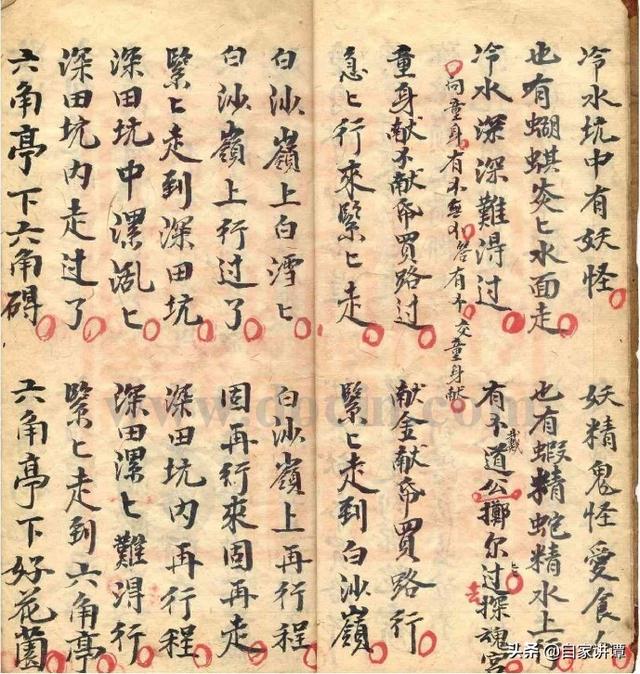 冷水坑中有妖怪 妖精鬼怪愛食
也有蝴蜞炎匕水面走 也有蝦精蛇精水上行
冷水深深難得过 有不道公擲尔过探魂宮
向童身有不 答有不 童身献
童身献不献帋買路过 献金献帋買路行
急匕行來緊匕走 緊匕走到白沙嶺
白沙嶺上白雪匕 白沙嶺上再行程
白沙嶺上行过了 固再行來固再走
緊匕走到深田坑 深田坑内再行程
深田坑中漯 匕 深田漯匕難得行
深田坑内走过了 緊匕走到六角亭
六角亭下六角碍 六角亭下好花園
头条 @自家讲谭